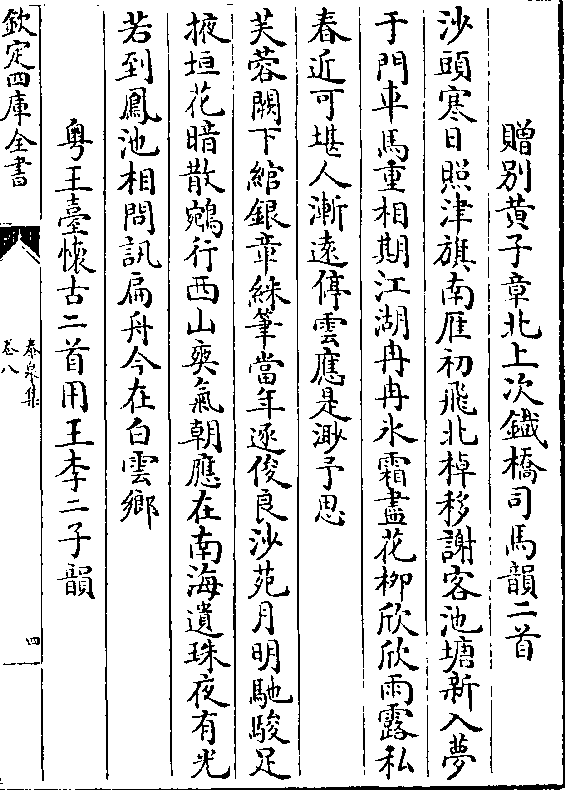 贈别黄子章北上次鐵橋司馬韻二首
沙頭寒日照津旗南雁初飛北棹移謝客池塘新入夢
于門車馬重相期江湖冉冉氷霜盡花柳欣欣雨露私
春近可堪人漸遠停雲應是渺予思
芙蓉闕下綰銀章綵筆當年逐俊良沙苑月明馳駿足
掖垣花暗散鵷行西山爽氣朝應在南海遺珠夜有光
若到鳳池相問訊扁舟今在白雲鄉
粤王臺懷古二首用王李二子韻
欽定四庫全書
泰泉集
卷八
四